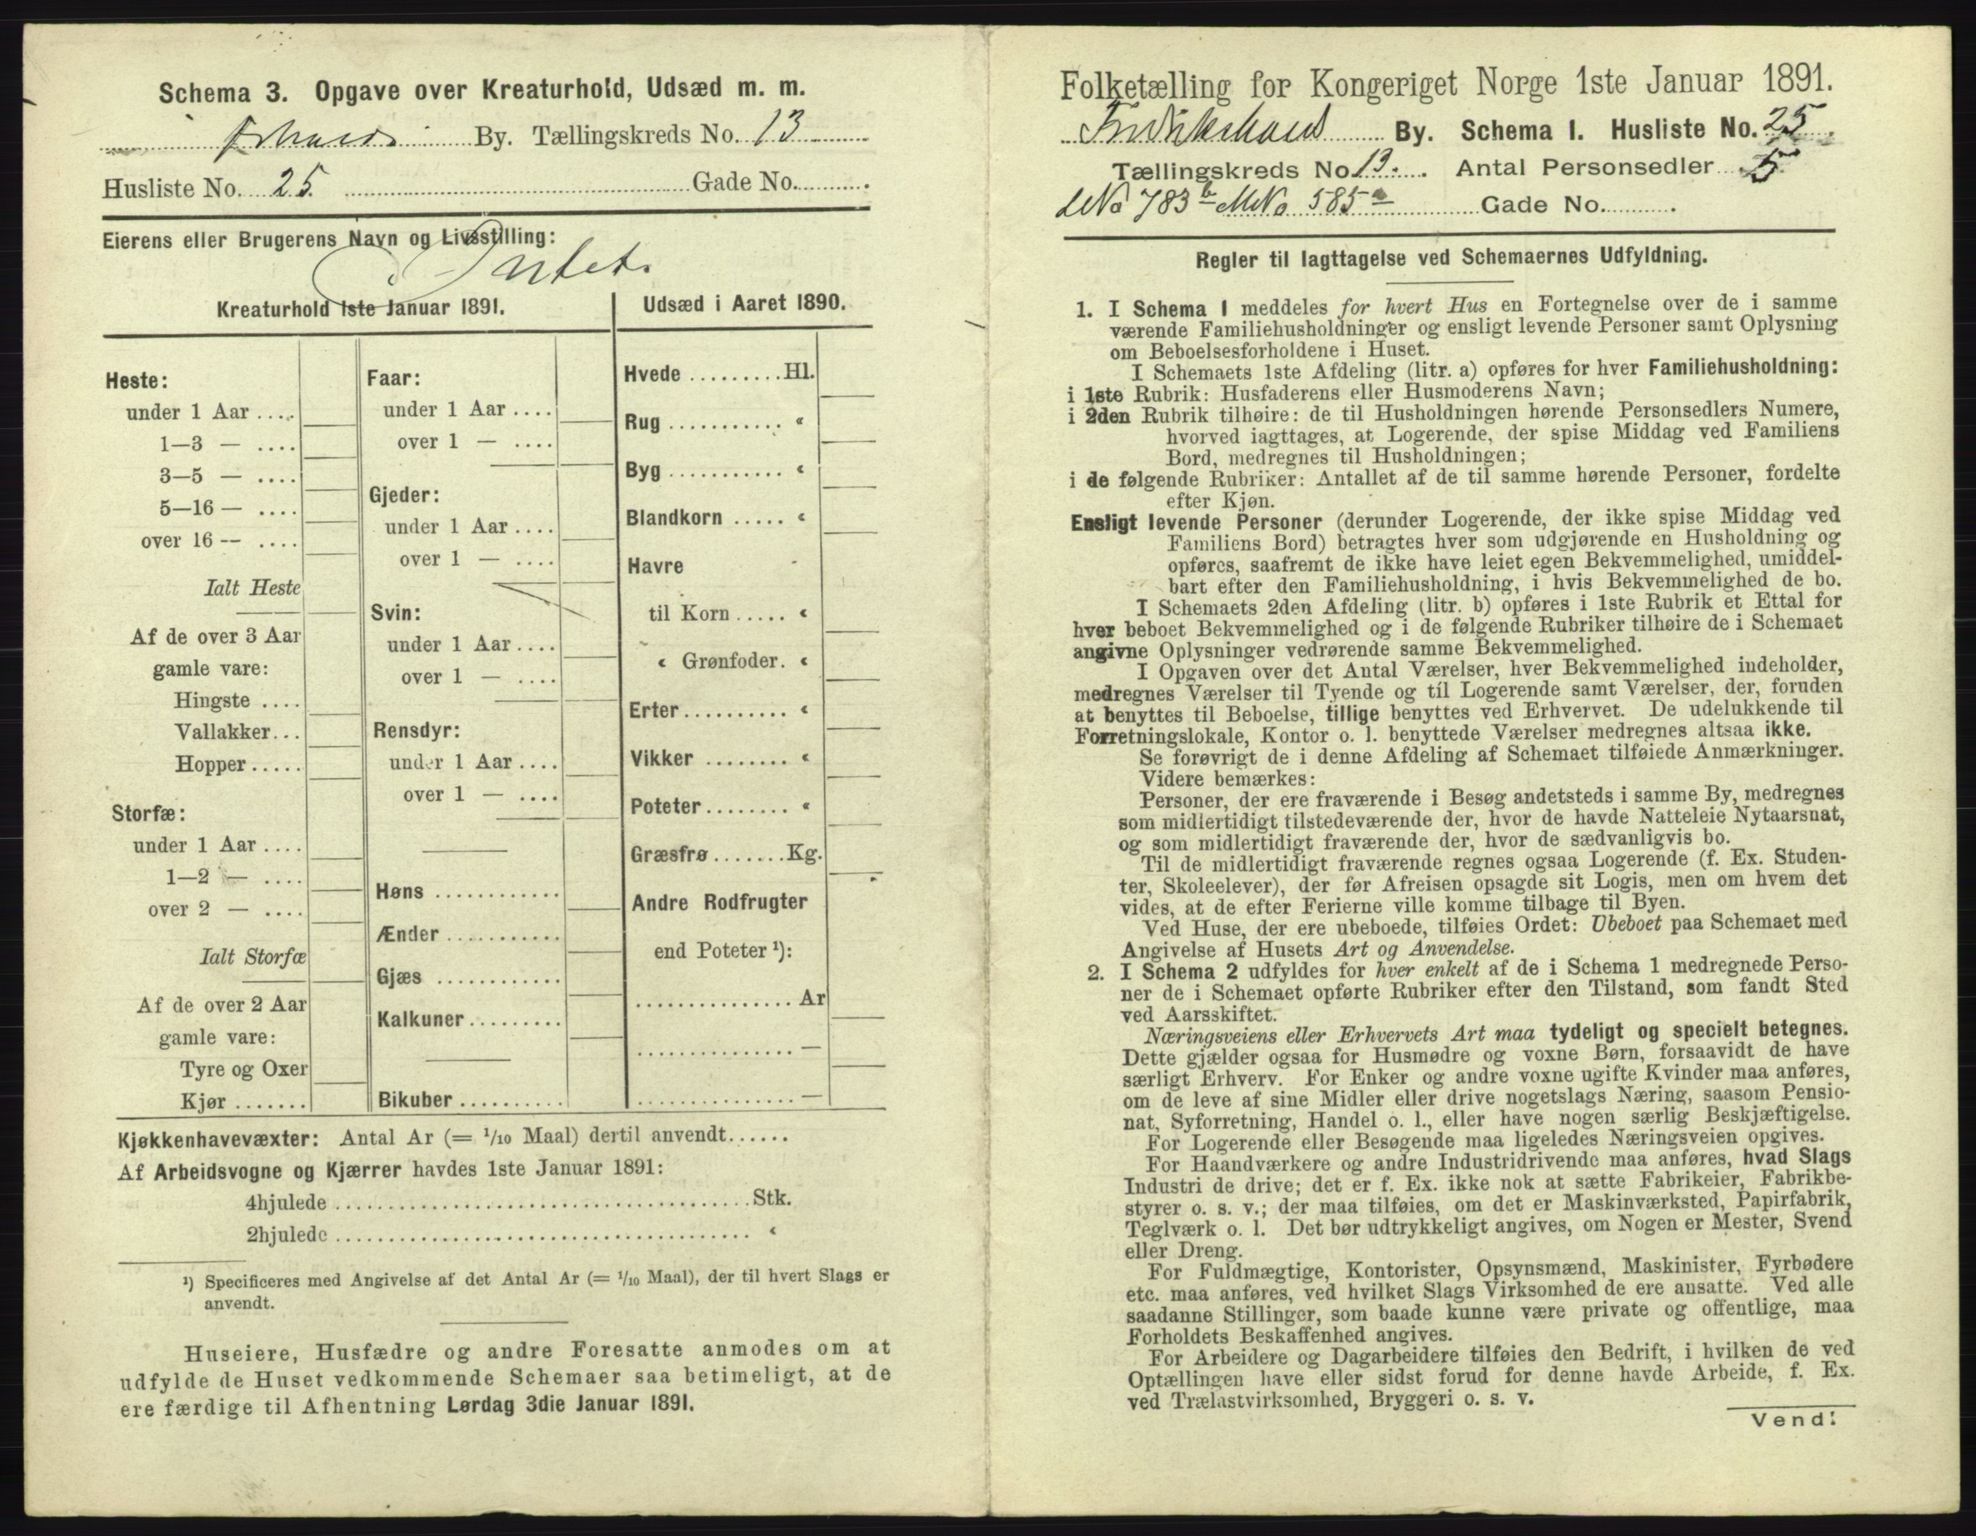 Schema 3. Opgave over Kreaturhold, Udsæd m. m.
By. Tællingskreds No. 13
Husliste No. 25 Gade No.
Eierens eller Brugerens Navn og Livsstilling:
Intet.
Kreaturhold 1ste Januar 1891.
Heste:
under 1 Aar ....
1—3 — ....
3—5 — ....
5—16 — ....
over 16 — ....
Ialt Heste
Af de over 3 Aar
gamle vare:
Hingste ....
Vallakker...
Hopper.....
Storfæ:
under 1 Aar ....
1—2 — ....
over 2 — ....
Ialt Storfæ
Af de over 2 Aar
gamle vare:
Tyre og Oxer
Kjør.......
Faar:
under 1 Aar ....
over 1 — ....
Gjeder:
under 1 Aar ....
over 1 — ....
Svin:
under 1 Aar ....
over 1 — ....
Rensdyr:
under 1 Aar ....
over 1 — ....
Høns ...........
Ænder ..........
Gjæs ...........
Kalkuner........
Bikuber .........
Udsæd i Aaret 1890.
Hvede .........Hl.
Rug ........... «
Byg ........... «
Blandkorn ..... «
Havre
til Korn ..... «
« Grønfoder. «
Erter.......... «
Vikker ........ «
Poteter........ «
Græsfrø.......Kg.
Andre Rodfrugter
end Poteter ¹):
...............Ar
............... —
............... —
Kjøkkenhavevæxter: Antal Ar (= 1/10 Maal) dertil anvendt......
Af Arbeidsvogne og Kjærrer havdes 1ste Januar 1891:
4hjulede ......................................Stk.
2hjulede ...................................... «
¹) Specificeres med Angivelse af det Antal Ar (= 1/10 Maal), der til hvert Slags er
anvendt.
Huseiere, Husfædre og andre Foresatte anmodes om at
udfylde de Huset vedkommende Schemaer saa betimeligt, at de
ere færdige til Afhentning Lørdag 3die Januar 1891.
Folketælling for Kongeriget Norge 1ste Januar 1891.
Fredrikshald By. Schema I. Husliste No. 25
Tællingskreds No 13. Antal Personsedler 5
LNo 783 b MNo 585 a Gade No.
Regler til Iagttagelse ved Schemaernes Udfyldning.
1. I Schema 1 meddeles for hvert Hus en Fortegnelse over de i samme
værende Familiehusholdninger og ensligt levende Personer samt Oplysning
om Beboelsesforholdene i Huset.
I Schemaets 1ste Afdeling (litr. a) opføres for hver Familiehusholdning:
i 1ste Rubrik: Husfaderens eller Husmoderens Navn;
i 2den Rubrik tilhøire: de til Husholdningen hørende Personsedlers Numere,
hvorved iagttages, at Logerende, der spise Middag ved Familiens
Bord, medregnes til Husholdningen;
i de følgende Rubriker: Antallet af de til samme hørende Personer, fordelte
efter Kjøn.
Ensligt levende Personer (derunder Logerende, der ikke spise Middag ved
Familiens Bord) betragtes hver som udgjørende en Husholdning og
opføres, saafremt de ikke have leiet egen Bekvemmelighed, umiddel-
bart efter den Familiehusholdning, i hvis Bekvemmelighed de bo.
I Schemaets 2den Afdeling (litr. b) opføres i 1ste Rubrik et Ettal for
hver beboet Bekvemmelighed og i de følgende Rubriker tilhøire de i Schemaet
angivne Oplysninger vedrørende samme Bekvemmelighed.
I Opgaven over det Antal Værelser, hver Bekvemmelighed indeholder,
medregnes Værelser til Tyende og til Logerende samt Værelser, der, foruden
at benyttes til Beboelse, tillige benyttes ved Erhvervet. De udelukkende til
Forretningslokale, Kontor o. l. benyttede Værelser medregnes altsaa ikke.
Se forøvrigt de i denne Afdeling af Schemaet tilføiede Anmærkninger.
Videre bemærkes:
Personer, der ere fraværende i Besøg andetsteds i samme By, medregnes
som midlertidigt tilstedeværende der, hvor de havde Natteleie Nytaarsnat,
og som midlertidigt fraværende der, hvor de sædvanligvis bo.
Til de midlertidigt fraværende regnes ogsaa Logerende (f. Ex. Studen-
ter, Skoleelever), der før Afreisen opsagde sit Logis, men om hvem det
vides, at de efter Ferierne ville komme tilbage til Byen.
Ved Huse, der ere ubeboede, tilføies Ordet: Ubeboet paa Schemaet med
Angivelse af Husets Art og Anvendelse.
2. I Schema 2 udfyldes for hver enkelt af de i Schema 1 medregnede Perso-
ner de i Schemaet opførte Rubriker efter den Tilstand, som fandt Sted
ved Aarsskiftet.
Næringsveiens eller Erhvervets Art maa tydeligt og specielt betegnes.
Dette gjælder ogsaa for Husmødre og voxne Børn, forsaavidt de have
særligt Erhverv. For Enker og andre voxne ugifte Kvinder maa anføres,
om de leve af sine Midler eller drive nogetslags Næring, saasom Pensio-
nat, Syforretning, Handel o. l., eller have nogen særlig Beskjæftigelse.
For Logerende eller Besøgende maa ligeledes Næringsveien opgives.
For Haandværkere og andre Industridrivende maa anføres, hvad Slags
Industri de drive; det er f. Ex. ikke nok at sætte Fabrikeier, Fabrikbe-
styrer o. s. v.; der maa tilføies, om det er Maskinværksted, Papirfabrik,
Teglværk o. l. Det bør udtrykkeligt angives, om Nogen er Mester, Svend
eller Dreng.
For Fuldmægtige, Kontorister, Opsynsmænd, Maskinister, Fyrbødere
etc. maa anføres, ved hvilket Slags Virksomhed de ere ansatte. Ved alle
saadanne Stillinger, som baade kunne være private og offentlige, maa
Forholdets Beskaffenhed angives.
For Arbeidere og Dagarbeidere tilføies den Bedrift, i hvilken de ved
Optællingen have eller sidst forud for denne havde Arbeide, f. Ex.
ved Trælastvirksomhed, Bryggeri o. s. v.
Vend!